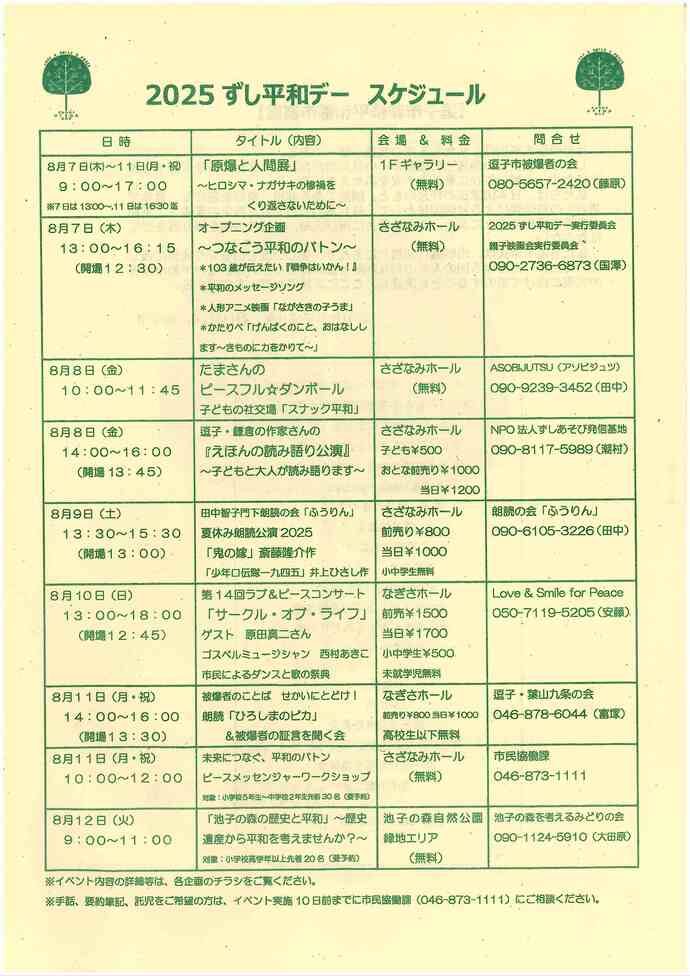 2025 ずし平和デー スケジュール
日時 タイトル（内容） 会場 ＆ 料金 問合せ
8月7日(木)～11日(月・祝) 「原爆と人間展」 1Fギャラリー 逗子市被爆者の会
9：00～17：00 ～ヒロシマ・ナガサキの惨禍を （無料） 080-5657-2420（藤原）
※7日は13:00～、11日は16:30迄 くり返さないために～
8月7日（木） オープニング企画 さざなみホール 2025ずし平和デー実行委員会
13：00～16：15 ～つなごう平和のバトン～ （無料） 親子映画会実行委員会
（開場12：30） ＊103歳が伝えたい『戦争はいかん！』 090-2736-6873（国澤）
＊平和のメッセージソング
＊人形アニメ映画「ながさきの子うま」
＊かたりべ「げんばくのこと、おはなしし
ます～きものに力をかりて～」
8月8日（金） たまさんの さざなみホール ASOBIJUTSU（アソビジュツ）
10：00～11：45 ピースフル☆ダンボール （無料） 090-9239-3452（田中）
子どもの社交場「スナック平和」
8月8日（金） 逗子・鎌倉の作家さんの さざなみホール NPO法人ずしあそび発信基地
14：00～16：00 『えほんの読み語り公演』 子ども￥500 090-8117-5989（瀬村）
（開場13：45） ～子どもと大人が読み語ります～ おとな前売り￥1000
当日￥1200
8月9日（土） 田中智子門下朗読の会「ふうりん」 さざなみホール 朗読の会「ふうりん」
13：30～15：30 夏休み朗読公演2025 前売り￥800 090-6105-3226（田中）
（開場13：00） 「鬼の嫁」斎藤隆介作 当日￥1000
「少年口伝隊一九四五」井上ひさし作 小中学生無料
8月10日（日） 第14回ラブ＆ピースコンサート なぎさホール Love & Smile for Peace
13：00～18：00 「サークル・オブ・ライフ」 前売￥1500 050-7119-5205（安藤）
（開場12：45） ゲスト 原田真二さん 当日￥1700
ゴスペルミュージシャン 西村あきこ 小中学生￥500
市民によるダンスと歌の祭典 未就学児無料
8月11日（月・祝） 被爆者のことば せかいにとどけ！ なぎさホール 逗子・葉山九条の会
14：00～16：00 朗読「ひろしまのピカ」 前売り￥800 当日￥1000 046-878-6044（富塚）
（開場13：30） ＆被爆者の証言を聞く会 高校生以下無料
8月11日（月・祝） 未来につなぐ、平和のバトン さざなみホール 市民協働課
10：00～12：00 ピースメッセンジャーワークショップ （無料） 046-873-1111
対象：小学校5年生～中学校2年生先着30名（要予約）
8月12日（火） 「池子の森の歴史と平和」～歴史 池子の森自然公園 池子の森を考えるみどりの会
9：00～11：00 遺産から平和を考えませんか？～ 緑地エリア 090-1124-5910（大田原）
対象：小学校高学年以上先着20名（要予約） （無料）
※イベント内容の詳細等は、各企画のチラシをご覧ください。
※手話、要約筆記、託児をご希望の方は、イベント実施10日前までに市民協働課（046-873-1111）にご相談ください。